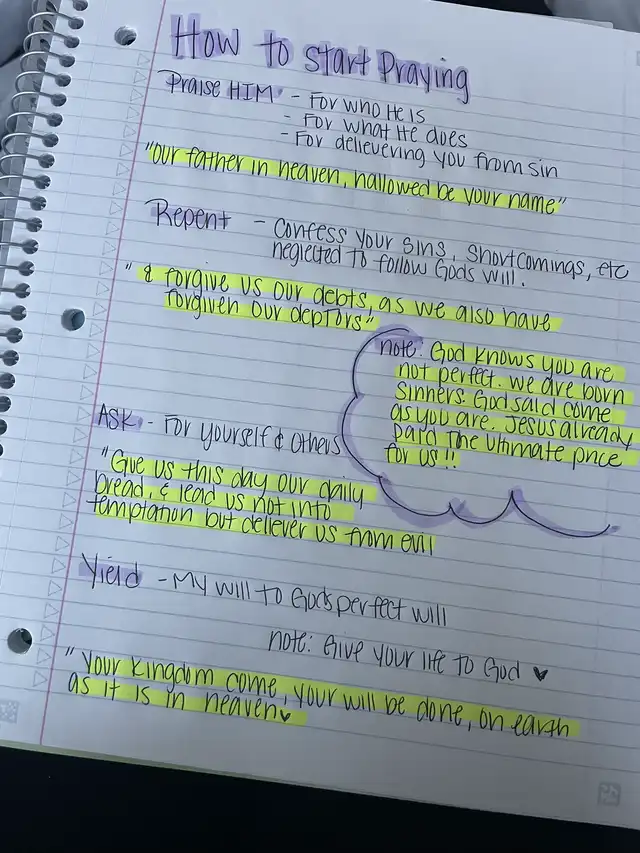 How to start Praying
Praise HIM - For who He is
- For what He does
- For delievering you from sin
"Our father in heaven, hallowed be your name"
Repent - Confess your sins, shortcomings, etc
neglected to follow Gods will.
" & forgive us our debts, as we also have
forgiven our deptors"
note: God knows you are
not perfect. we are born
sinners. God said come
as you are. Jesus already
paid the ultimate price
for us!!
ASK - For yourself & others
"Give us this day our daily
bread, & lead us not into
temptation but deliever us from evil
Yield - My will to Gods perfect will
note: Give your life to God ♥
"Your kingdom come, your will be done, on earth
as it is in heaven♥